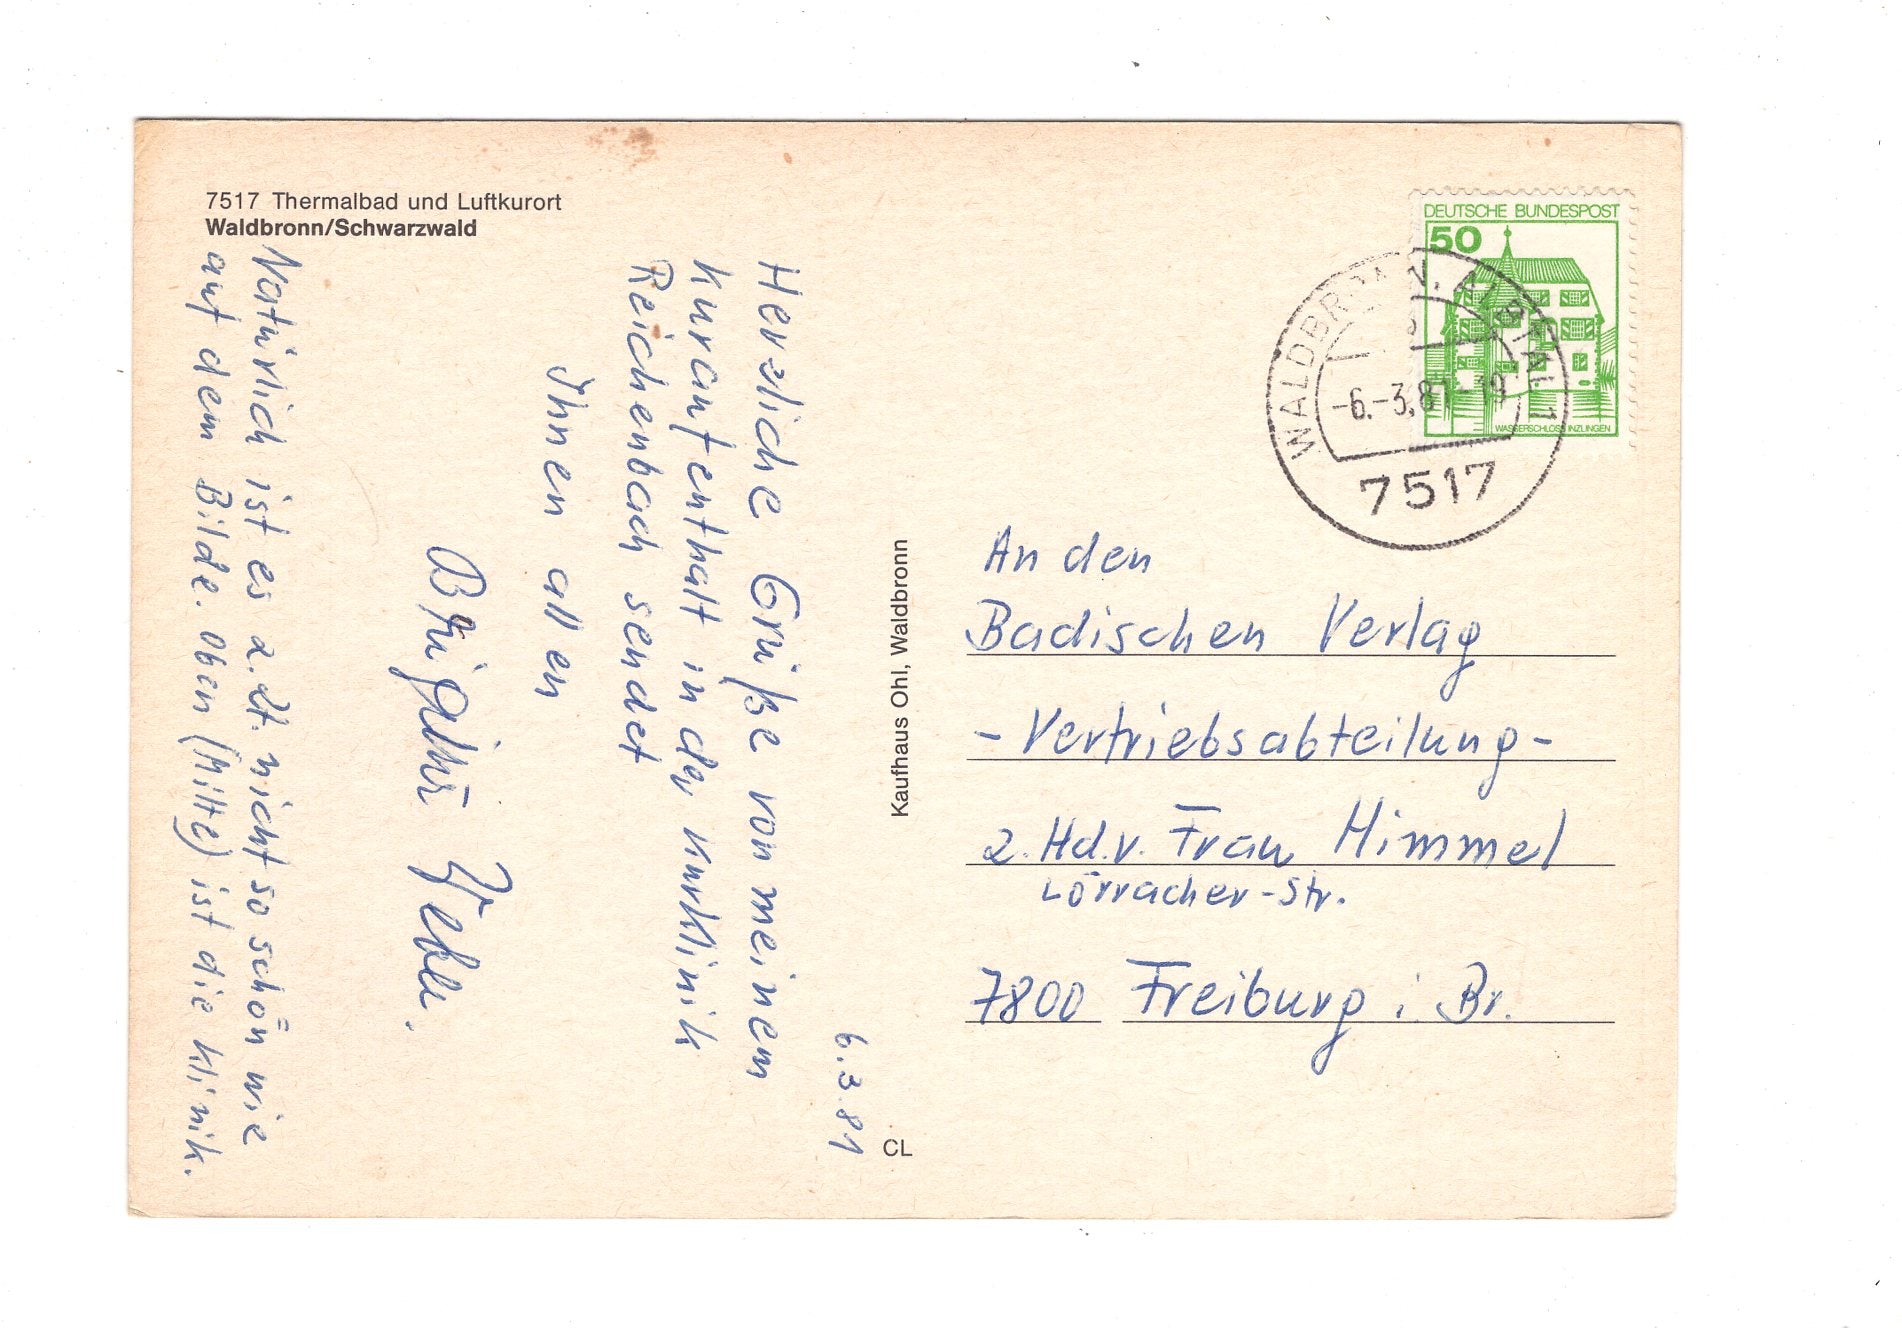 7517 Thermalbad und Luftkurort
Waldbronn/Schwarzwald
6.3.81
Herzliche Grüße von meinem
Kuraufenthalt in der Kurklinik
Reichenbach sendet
Ihnen allen
Natürlich ist es z.Zt. nicht so schön wie
auf dem Bilde. Oben (Mitte) ist die Klinik.
Kaufhaus Ohl, Waldbronn
CL
DEUTSCHE BUNDESPOST
50
WASSERSCHLOSS INZLINGEN
WALDBRONN, ALBTAL 1
-6.-3.81-19
7517
An den
Badischen Verlag
- Vertriebsabteilung -
z. Hd. v. Frau Himmel
Lörracher-Str.
7800 Freiburg i. Br.